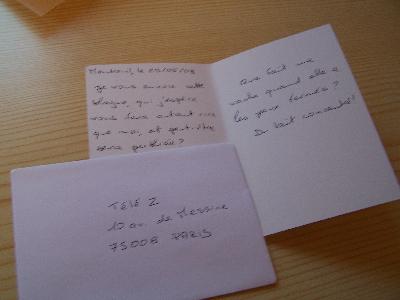 Montreuil, le 25/05/08
Je vous envoie cette
blague, qui j'espère
vous fera autant rire
que moi, et peut-être
sera publiée ?
Que fait une
vache quand elle a
les yeux fermés ?
Du lait concentré !
TÉLÉ Z
10 av. de Messine
75008 PARIS